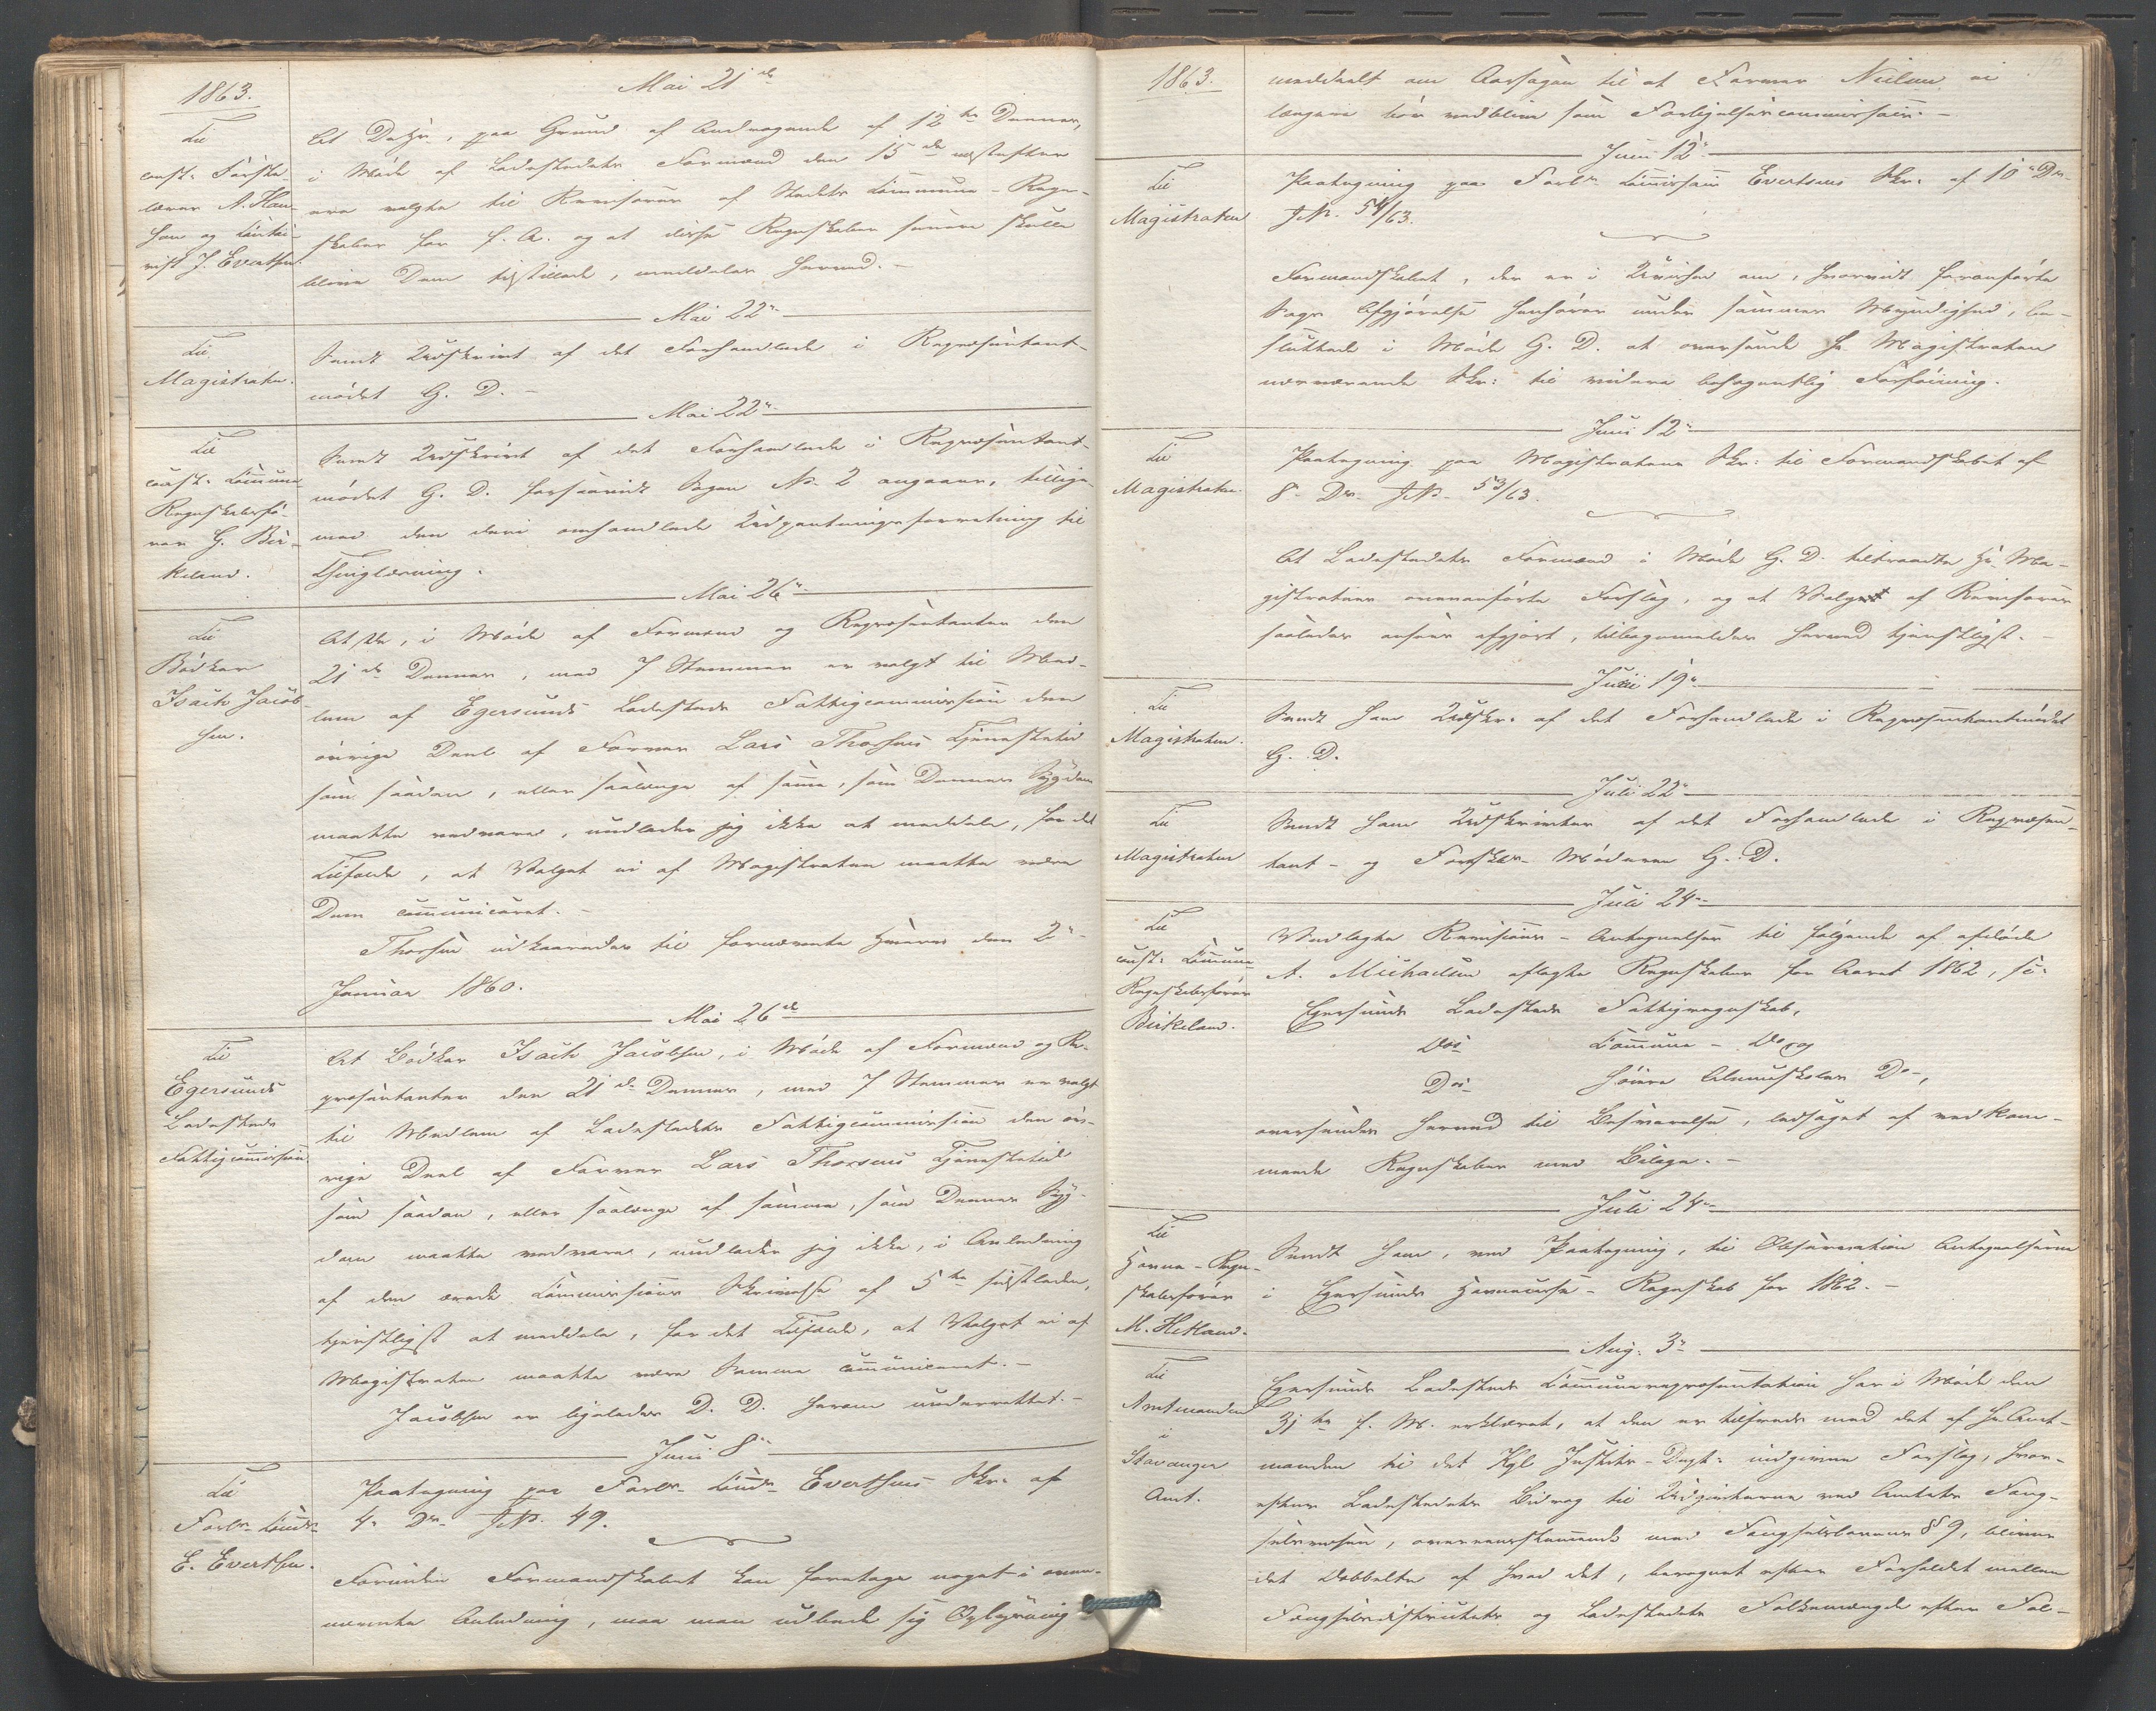 1863.
Mai 21de
Til
const. Første-
lærer A. Han-
sen og Conto-
rist J. Evertsen.
At De Hr., paa Grund af Andragende af 12te Dennes,
i Møde af Ladestedets Formænd den 15de næstefter
ere valgte til Revisorer af Stedets Commune-Regn-
skaber for f. A. og at disse Regnskaber senere skulle
blive Dem tilstillede, meddeles herved.-
Mai 22de
Til
Magistraten.
Sendt Udskrivt af det Forhandlede i Repræsentant-
mødet G. D.-
Mai 22de
Til
const. Commune
Regnskabsfø-
rer G. Bir-
keland.
Sendt Udskrivt af det Forhandlede i Repræsentant-
mødet G. D. forsaavidt Sagen No. 2 angaaer, tillige-
med den deri omhandlede Udpantningsforretning til
Thinglæsning.
Mai 26de
Til
Bødker
Isach Jacob-
sen.
At De, i Møde af Formænd og Repræsentanter den
21de Dennes, med 7 Stemmer er valgt til Med-
lem af Egersunds Ladesteds Fattigcommission den
øvrige Deel af Farver Lars Thorsens Tjenestetid
som saadan, eller saalænge af samme, som Dennes Sygdom
maatte vedvare, undlader jeg ikke at meddele, for det
Tilfælde, at Valget ei af Magistraten maatte være
Dem communiceret.-
Thorsen udkaaredes til fornævnte Hverv den 2den
Januar 1860.
Mai 26de
Til
Egersunds
Ladesteds
Fattigcommission
At Bødker Isach Jacobsen, i Møde af Formænd og Re-
præsentanter den 21de Dennes, med 7 Stemmer er valgt
til Medlem af Ladestedets Fattigcommission den øv-
rige Deel af Farver Lars Thorsens Tjenestetid
som saadan, eller saalænge af samme, som Dennes Syg-
dom maatte vedvare, undlader jeg ikke, i Anledning
af den ærede Commissions Skrivelse af 5te sidstleden,
tjenstligst at meddele, for det Tilfælde, at Valget ei af
Magistraten maatte være Samme communiceret.-
Jacobsen er ligeledes D. D. herom underrettet.-
Juni 8de
Til
Forl. Comm.
E. Evertsen.
Paategning paa Forl. Comm. Evertsens Skr. af
4. Ds. J.N. 49.
Forinden Formandskabet kan foretage noget i oven-
nævnte Anledning, maa man udbede sig Oplysning
1863.
meddeelt om Aarsagen til at Farver Nielsen ei
længere bør vedblive som Forligelsescommissair.-
Juni 12te
Til
Magistraten
Paategning paa Forl. Commissair Evertsens Skr. af 10de Ds.
J.N. 54/63.
Formandskabet, der er i Uvished om, hvorvidt foranførte
Sags Afgjørelse henhører under sammes Myndighed, be-
sluttede i Møde G. D. at oversende Hr. Magistraten
nærværende Skr. til videre behagentlig Forføining.
Juni 12te
Til
Magistraten.
Paategning paa Magistratens Skr. til Formandskabet af
8. Ds. J.N. 53/63.
At Ladestedets Formænd i Møde G. D. tiltraadte Hr. Ma-
gistratens ovenanførte Forslag, og at Valget af Revisorer
saaledes ansees afgjort, tilbagemeldes herved tjenstligst.-
Juni 19de
Til
Magistraten.
Sendt ham Udskr. af det Forhandlede i Repræsentantmødet
G. D.
Juli 22de
Til
Magistraten
Sendt ham Udskrivter af det Forhandlede i Repræsen-
tant- og Formskbs-Møderne G. D.
Juli 24de
Til
const. Commune
Regnskabsfører
Birkeland.
Vedlagte Revisions-Antegnelser til følgende af afdøde
A. Michaelsen aflagte Regnskaber for Aaret 1862, so:
Egersunds Ladesteds Fattigregnskab,
Dos Commune- Do og
Dos høiere Almueskoles Do-,
oversendes herved til Besvarelse, ledsaget af vedkom-
mende Regnskaber med Bilage.-
Juli 24de
Til
Havne-Regn-
skabsfører
M. Hetland.
Sendt ham, med Paategning, til Observation Antegnelserne
i Egersunds Havnecasse-Regnskab for 1862.-
Aug. 3de
Til
Amtmanden
i
Stavanger
Amt.
Egersunds Ladesteds Communerepræsentation har i Møde den
31te f. M. erklæret, at den er tilfreds med det af Hr. Amt-
manden til det Kgl. Justits-Dept. indgivne Forslag, hvor-
efter Ladestedets Bidrag til Udgivterne ved Amtets Fæng-
selsvæsen, overeensstemmende med Fængselslovens § 9, bliver
det Dobbelte af hvad det, beregnet efter Forholdet mellem
Fængselsdistrictets og Ladestedets Folkemængde efter Fol-